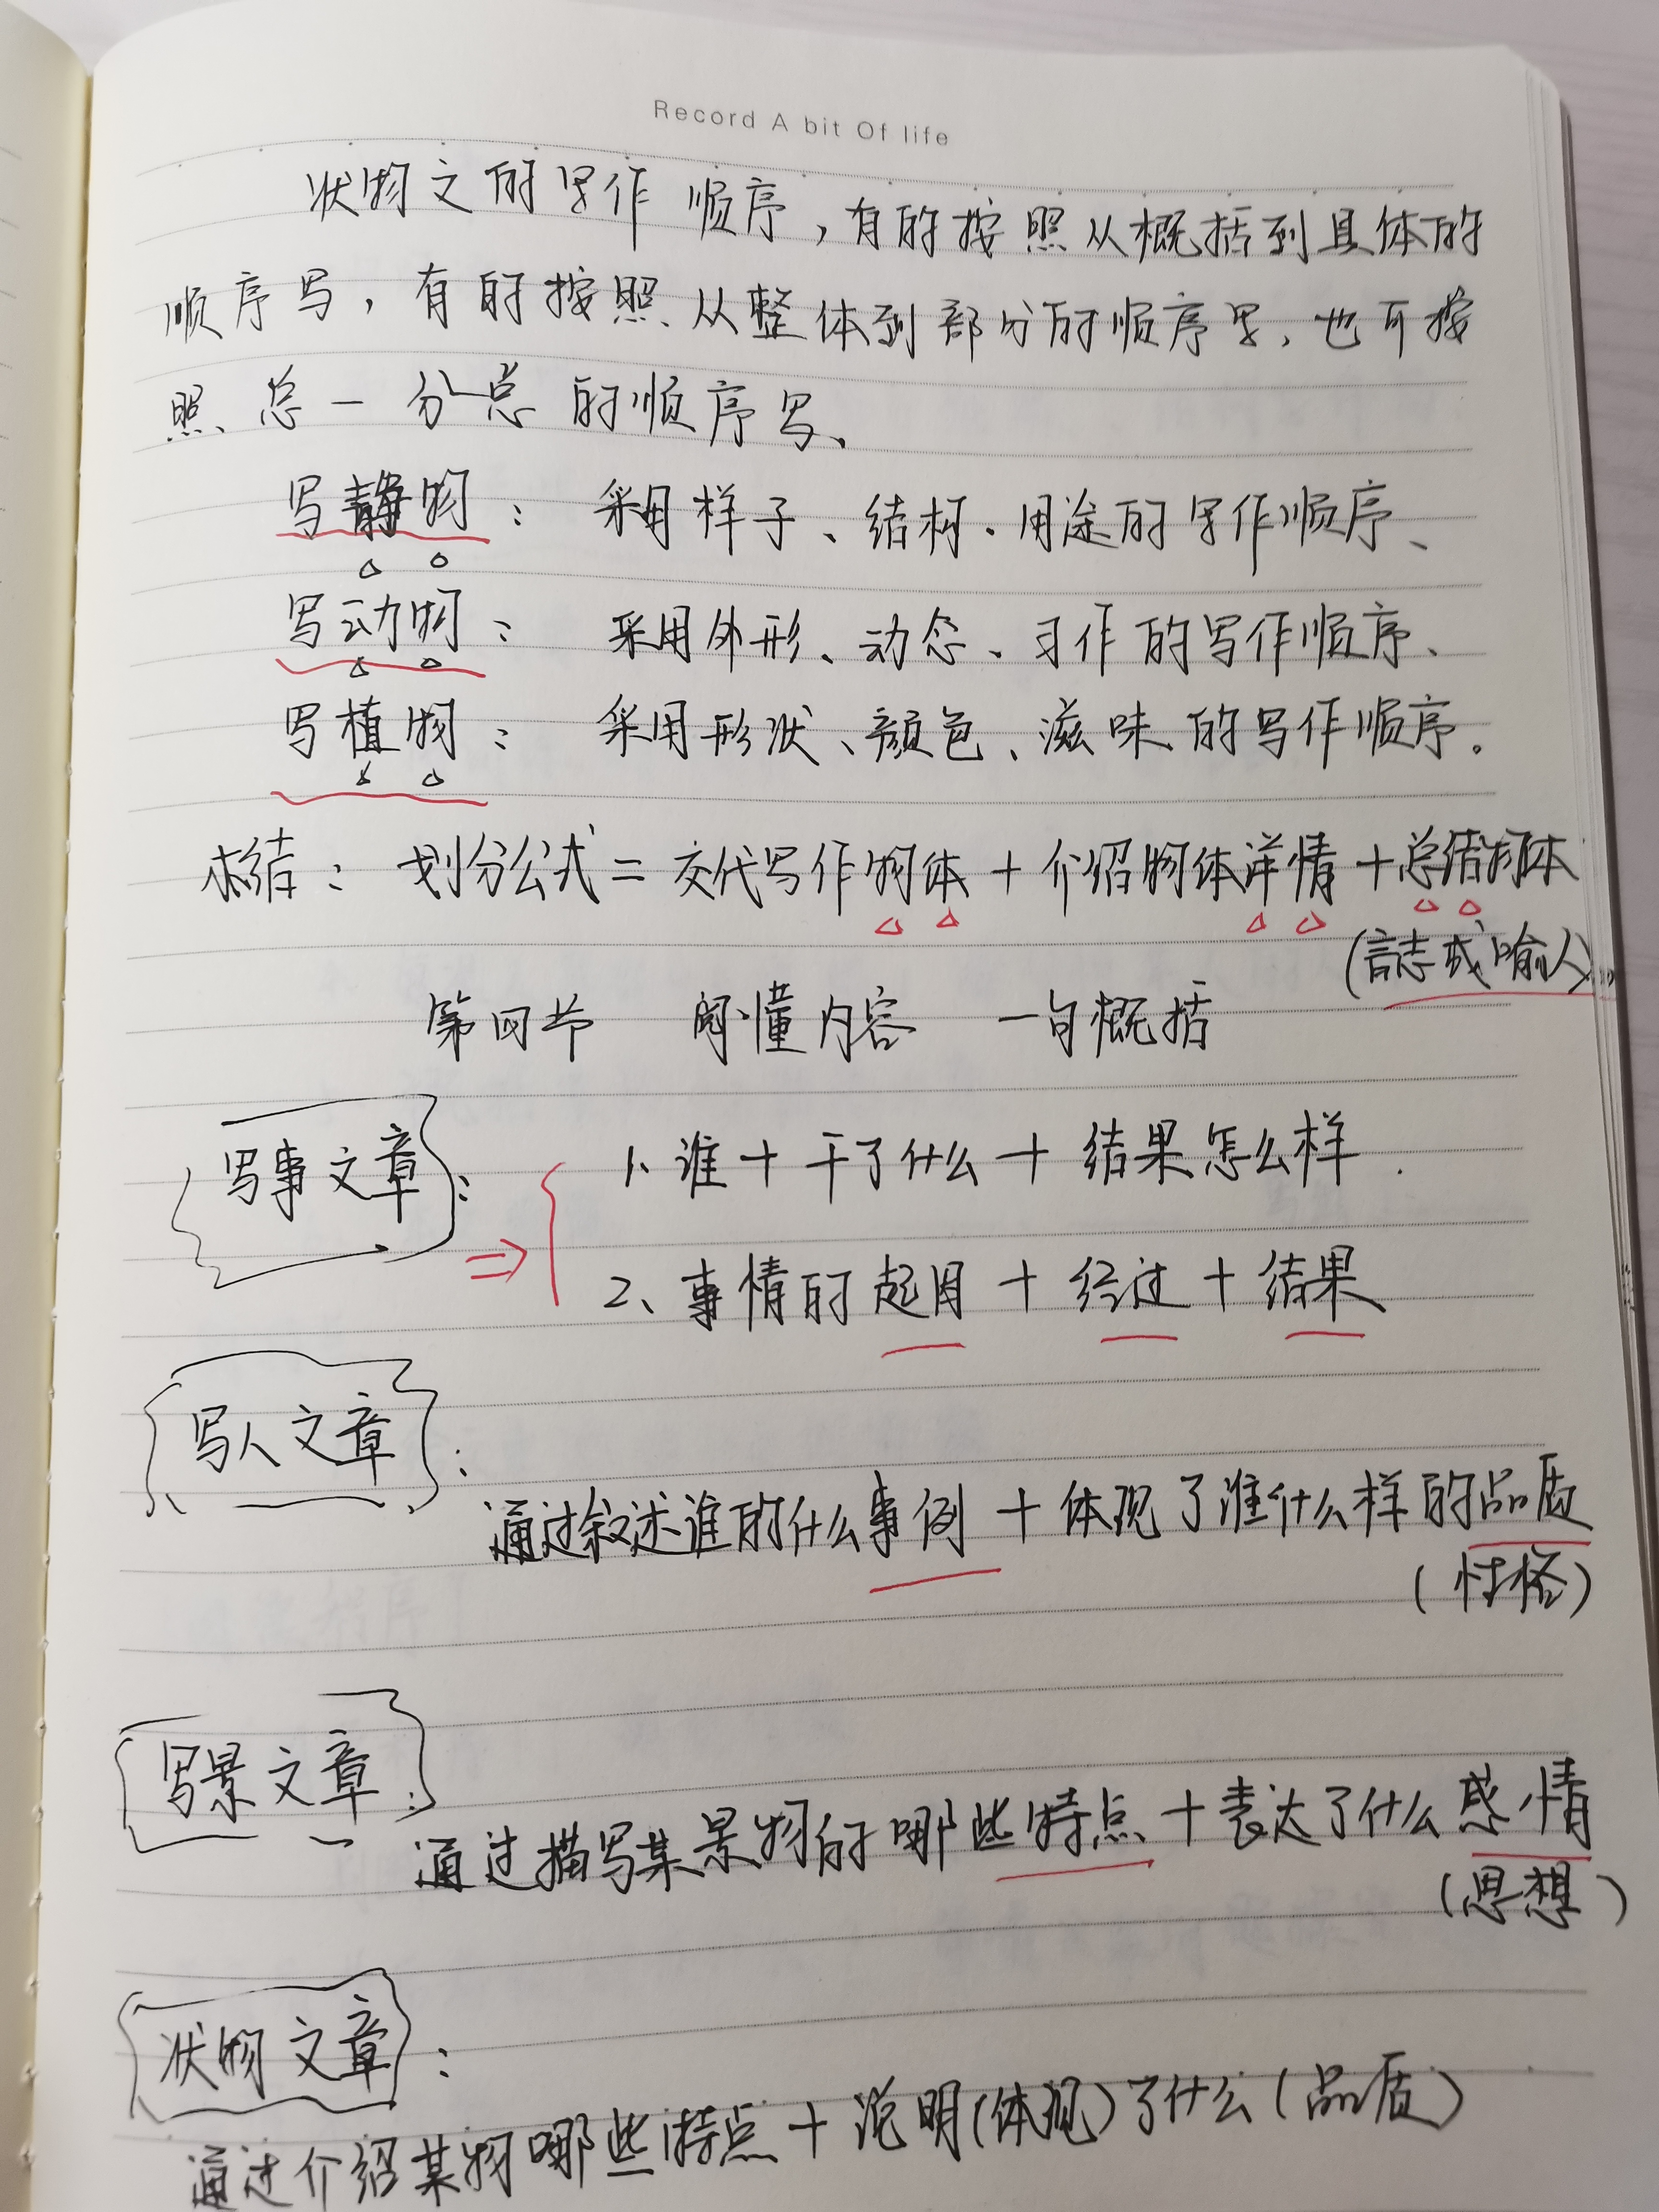 Record A bit Of life
状物文的写作顺序,有的按照从概括到具体的
顺序写,有的按照从整体到部分的顺序写、也可按
照总一分一总的顺序写、
写静物: 采用样子、结构、用途的写作顺序、
写动物: 采用外形、动态、习作的写作顺序、
写植物: 采用形状、颜色、滋味的写作顺序。
总结: 划分公式=交代写作物体+介绍物体详情+总结物体
(言志或喻人)
第四节 阅懂内容 一句概括
写事文章: ⇒ 1、谁+干了什么+结果怎么样
2、事情的起因+经过+结果
写人文章:
通过叙述谁的什么事例+体现了谁什么样的品质
(性格)
写景文章:
通过描写某景物的哪些特点+表达了什么感情
(思想)
状物文章:
通过介绍某物哪些特点+说明(体现)了什么(品质)